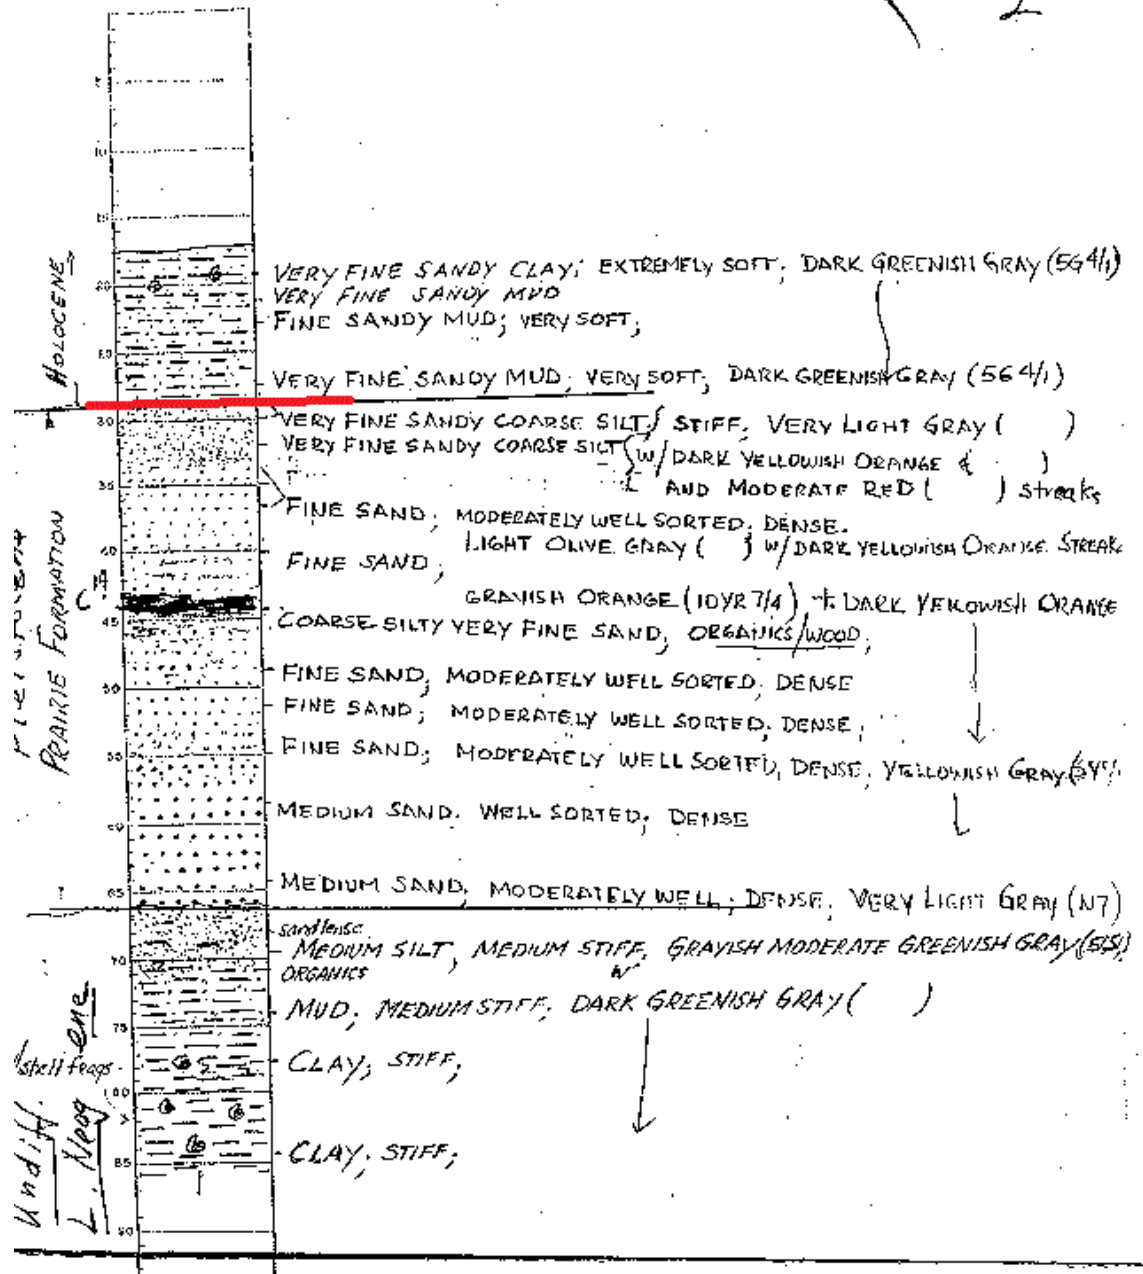 2
5
10
15
HOLOCENE
VERY FINE SANDY CLAY; EXTREMELY SOFT; DARK GREENISH GRAY (5G 4/1)
20
VERY FINE SANDY MUD
FINE SANDY MUD; VERY SOFT;
VERY FINE SANDY MUD; VERY SOFT; DARK GREENISH GRAY (5G 4/1)
30
VERY FINE SANDY COARSE SILT; STIFF; VERY LIGHT GRAY ( )
VERY FINE SANDY COARSE SILT W/ DARK YELLOWISH ORANGE ( )
AND MODERATE RED ( ) streaks
35
FINE SAND; MODERATELY WELL SORTED; DENSE.
LIGHT OLIVE GRAY ( ) W/ DARK YELLOWISH ORANGE STREAK
40
FINE SAND;
PRAIRIE FORMATION
C14
GRAYISH ORANGE (10YR 7/4) + DARK YELLOWISH ORANGE
45
COARSE SILTY VERY FINE SAND; ORGANICS/WOOD;
FINE SAND; MODERATELY WELL SORTED; DENSE
50
FINE SAND; MODERATELY WELL SORTED; DENSE;
FINE SAND; MODERATELY WELL SORTED; DENSE; YELLOWISH GRAY
55
MEDIUM SAND. WELL SORTED; DENSE
60
MEDIUM SAND; MODERATELY WELL; DENSE; VERY LIGHT GRAY (N7)
65
sand lense
MEDIUM SILT, MEDIUM STIFF, GRAYISH MODERATE GREENISH GRAY
70
ORGANICS
MUD; MEDIUM STIFF; DARK GREENISH GRAY ( )
75
shell frags
CLAY; STIFF;
Undiff.
L. Neogene
CLAY; STIFF;
85
90